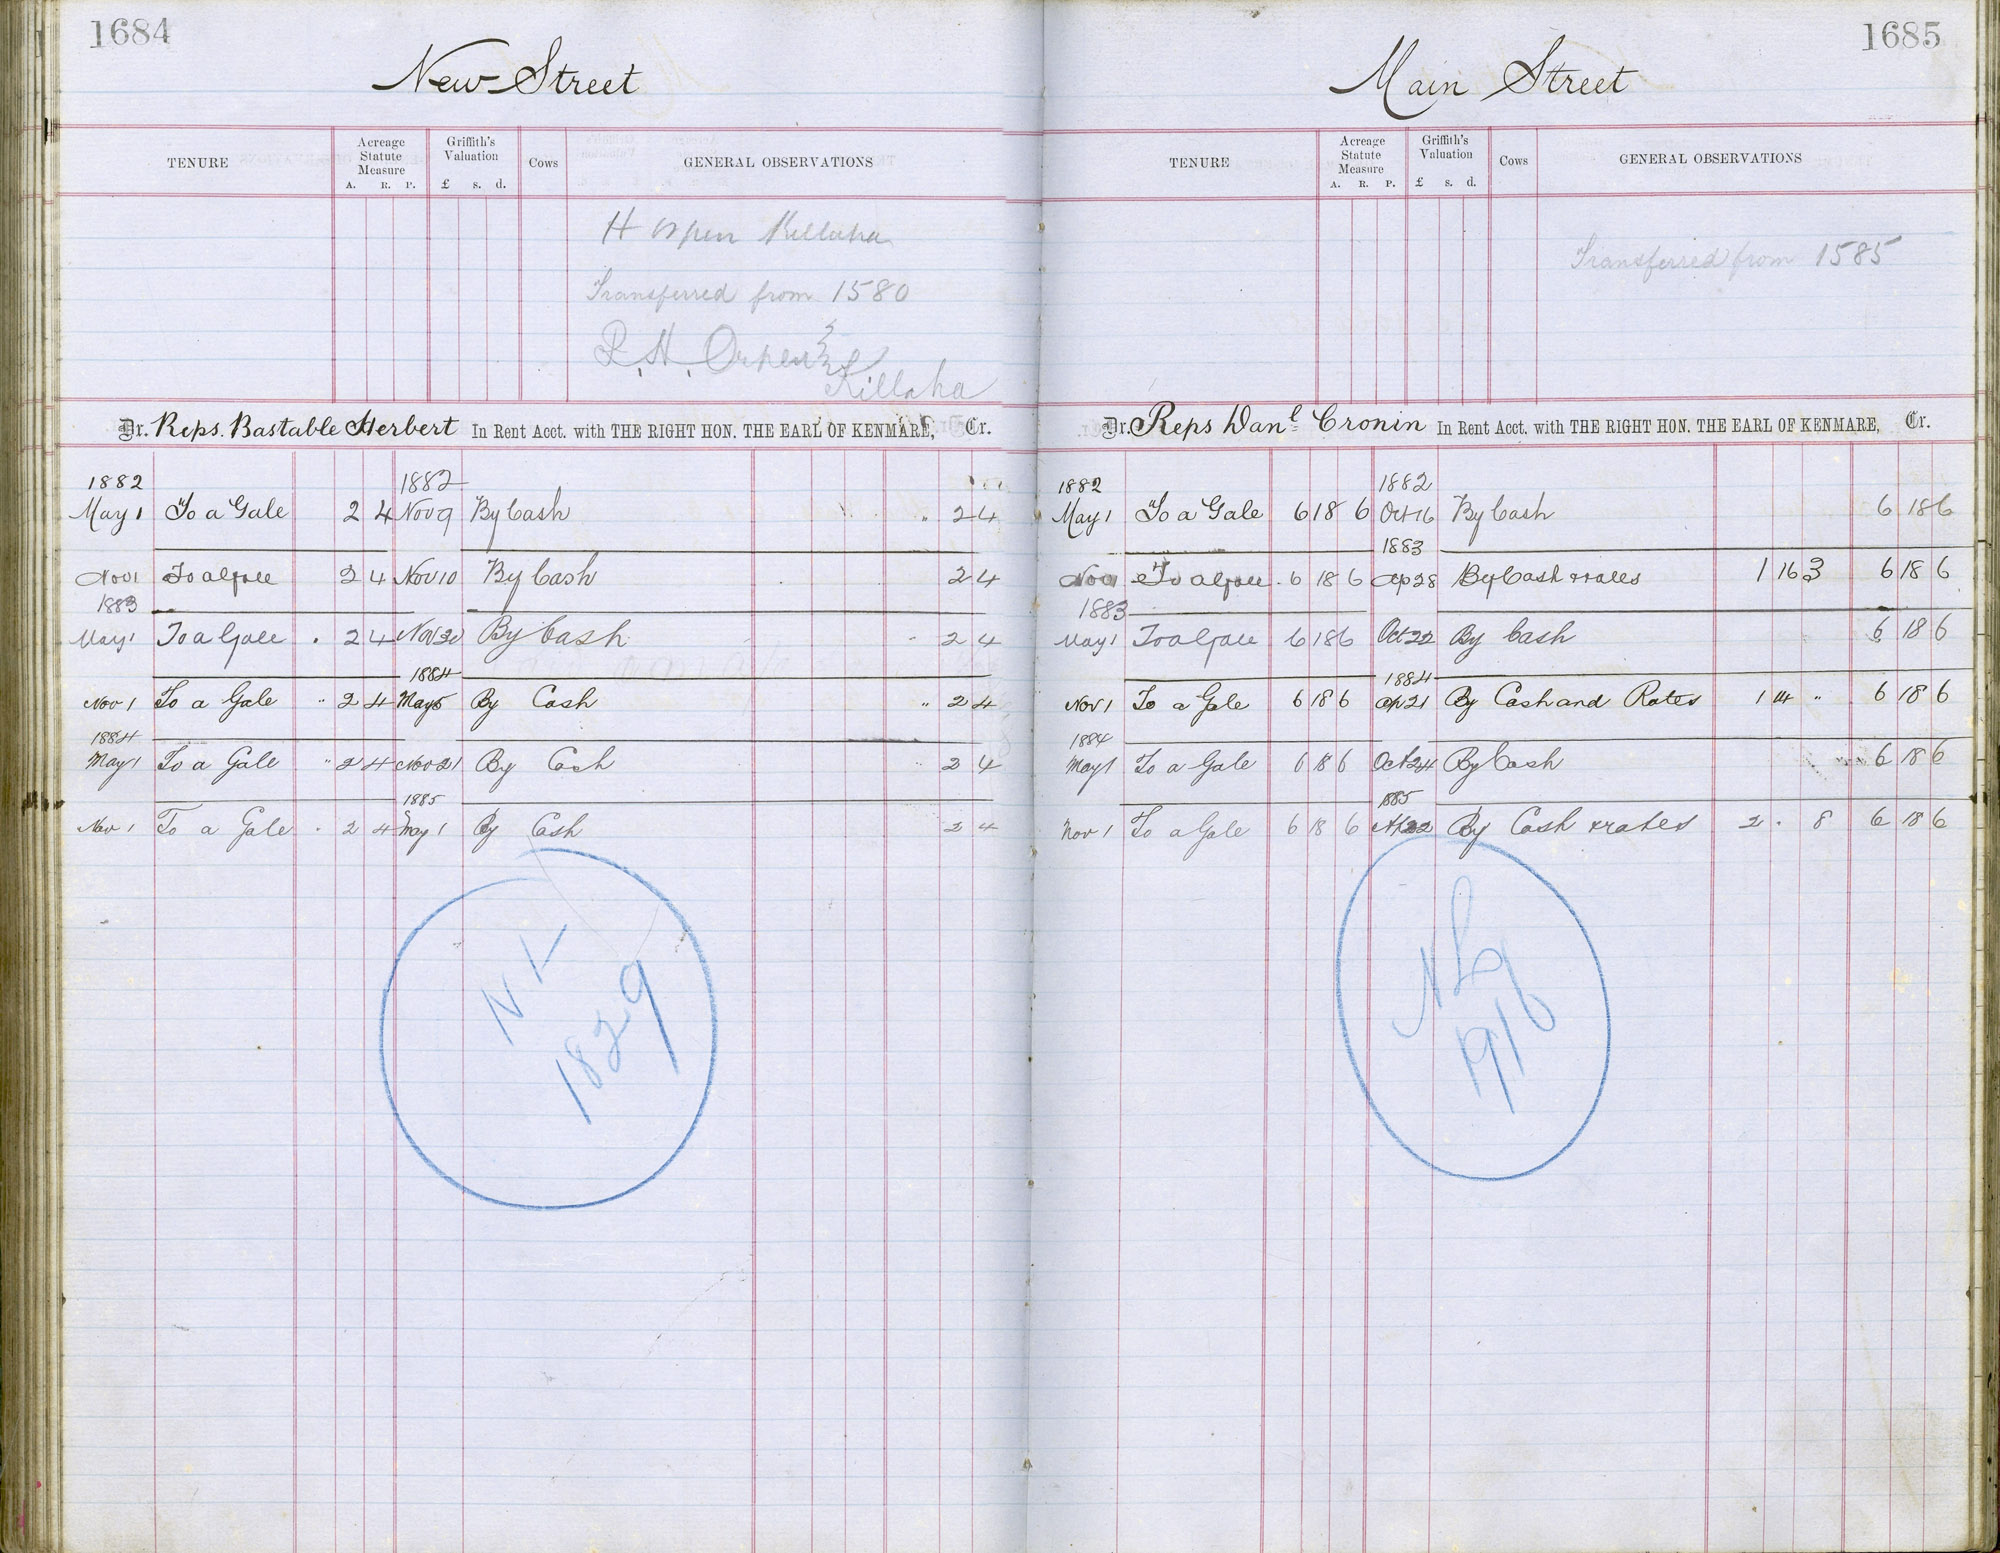 1684
New Street
TENURE
Acreage Statute Measure
A. R. P.
Griffith's Valuation
£ s. d.
Cows
GENERAL OBSERVATIONS
H Orpen Killaha
Transferred from 1580
R. H. Orpen
Killaha
Dr. Reps. Bastable Herbert In Rent Acct. with THE RIGHT HON. THE EARL OF KENMARE, Cr.
1882 1882
May 1 To a Gale 2 4 Nov 9 By Cash " 2 4
Nov 1 To a Gale 2 4 Nov 10 By Cash 2 4
1883
May 1 To a Gale . 2 4 Nov 20 By Cash " 2 4
1884
Nov 1 To a Gale " 2 4 May 5 By Cash " 2 4
1884
May 1 To a Gale " 2 4 Nov 21 By Cash " 2 4
1885
Nov 1 To a Gale . 2 4 May 1 By Cash 2 4
1829
1685
Main Street
TENURE
Acreage Statute Measure
A. R. P.
Griffith's Valuation
£ s. d.
Cows
GENERAL OBSERVATIONS
Transferred from 1585
Dr. Reps Danl Cronin In Rent Acct. with THE RIGHT HON. THE EARL OF KENMARE, Cr.
1882 1882
May 1 To a Gale 6 18 6 Oct 16 By Cash 6 18 6
1883
Nov 1 To a Gale . 6 18 6 Ap 28 By Cash & rates 1 16 3 6 18 6
1883
May 1 To a Gale 6 18 6 Oct 22 By Cash 6 18 6
1884
Nov 1 To a Gale 6 18 6 Ap 21 By Cash and Rates 1 14 " 6 18 6
1884
May 1 To a Gale 6 18 6 Oct 24 By Cash 6 18 6
1885
Nov 1 To a Gale 6 18 6 Ap 22 By Cash & rates 2 . 8 6 18 6
1916